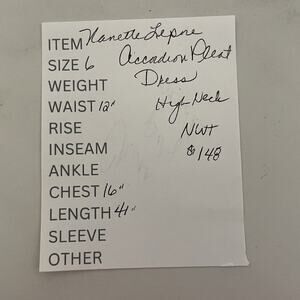 ITEM Nanette Lepore
SIZE 6 Accadion Pleat
WEIGHT Dress
WAIST 12" High Neck
RISE
INSEAM NWT
ANKLE $148
CHEST 16"
LENGTH 41"
SLEEVE
OTHER